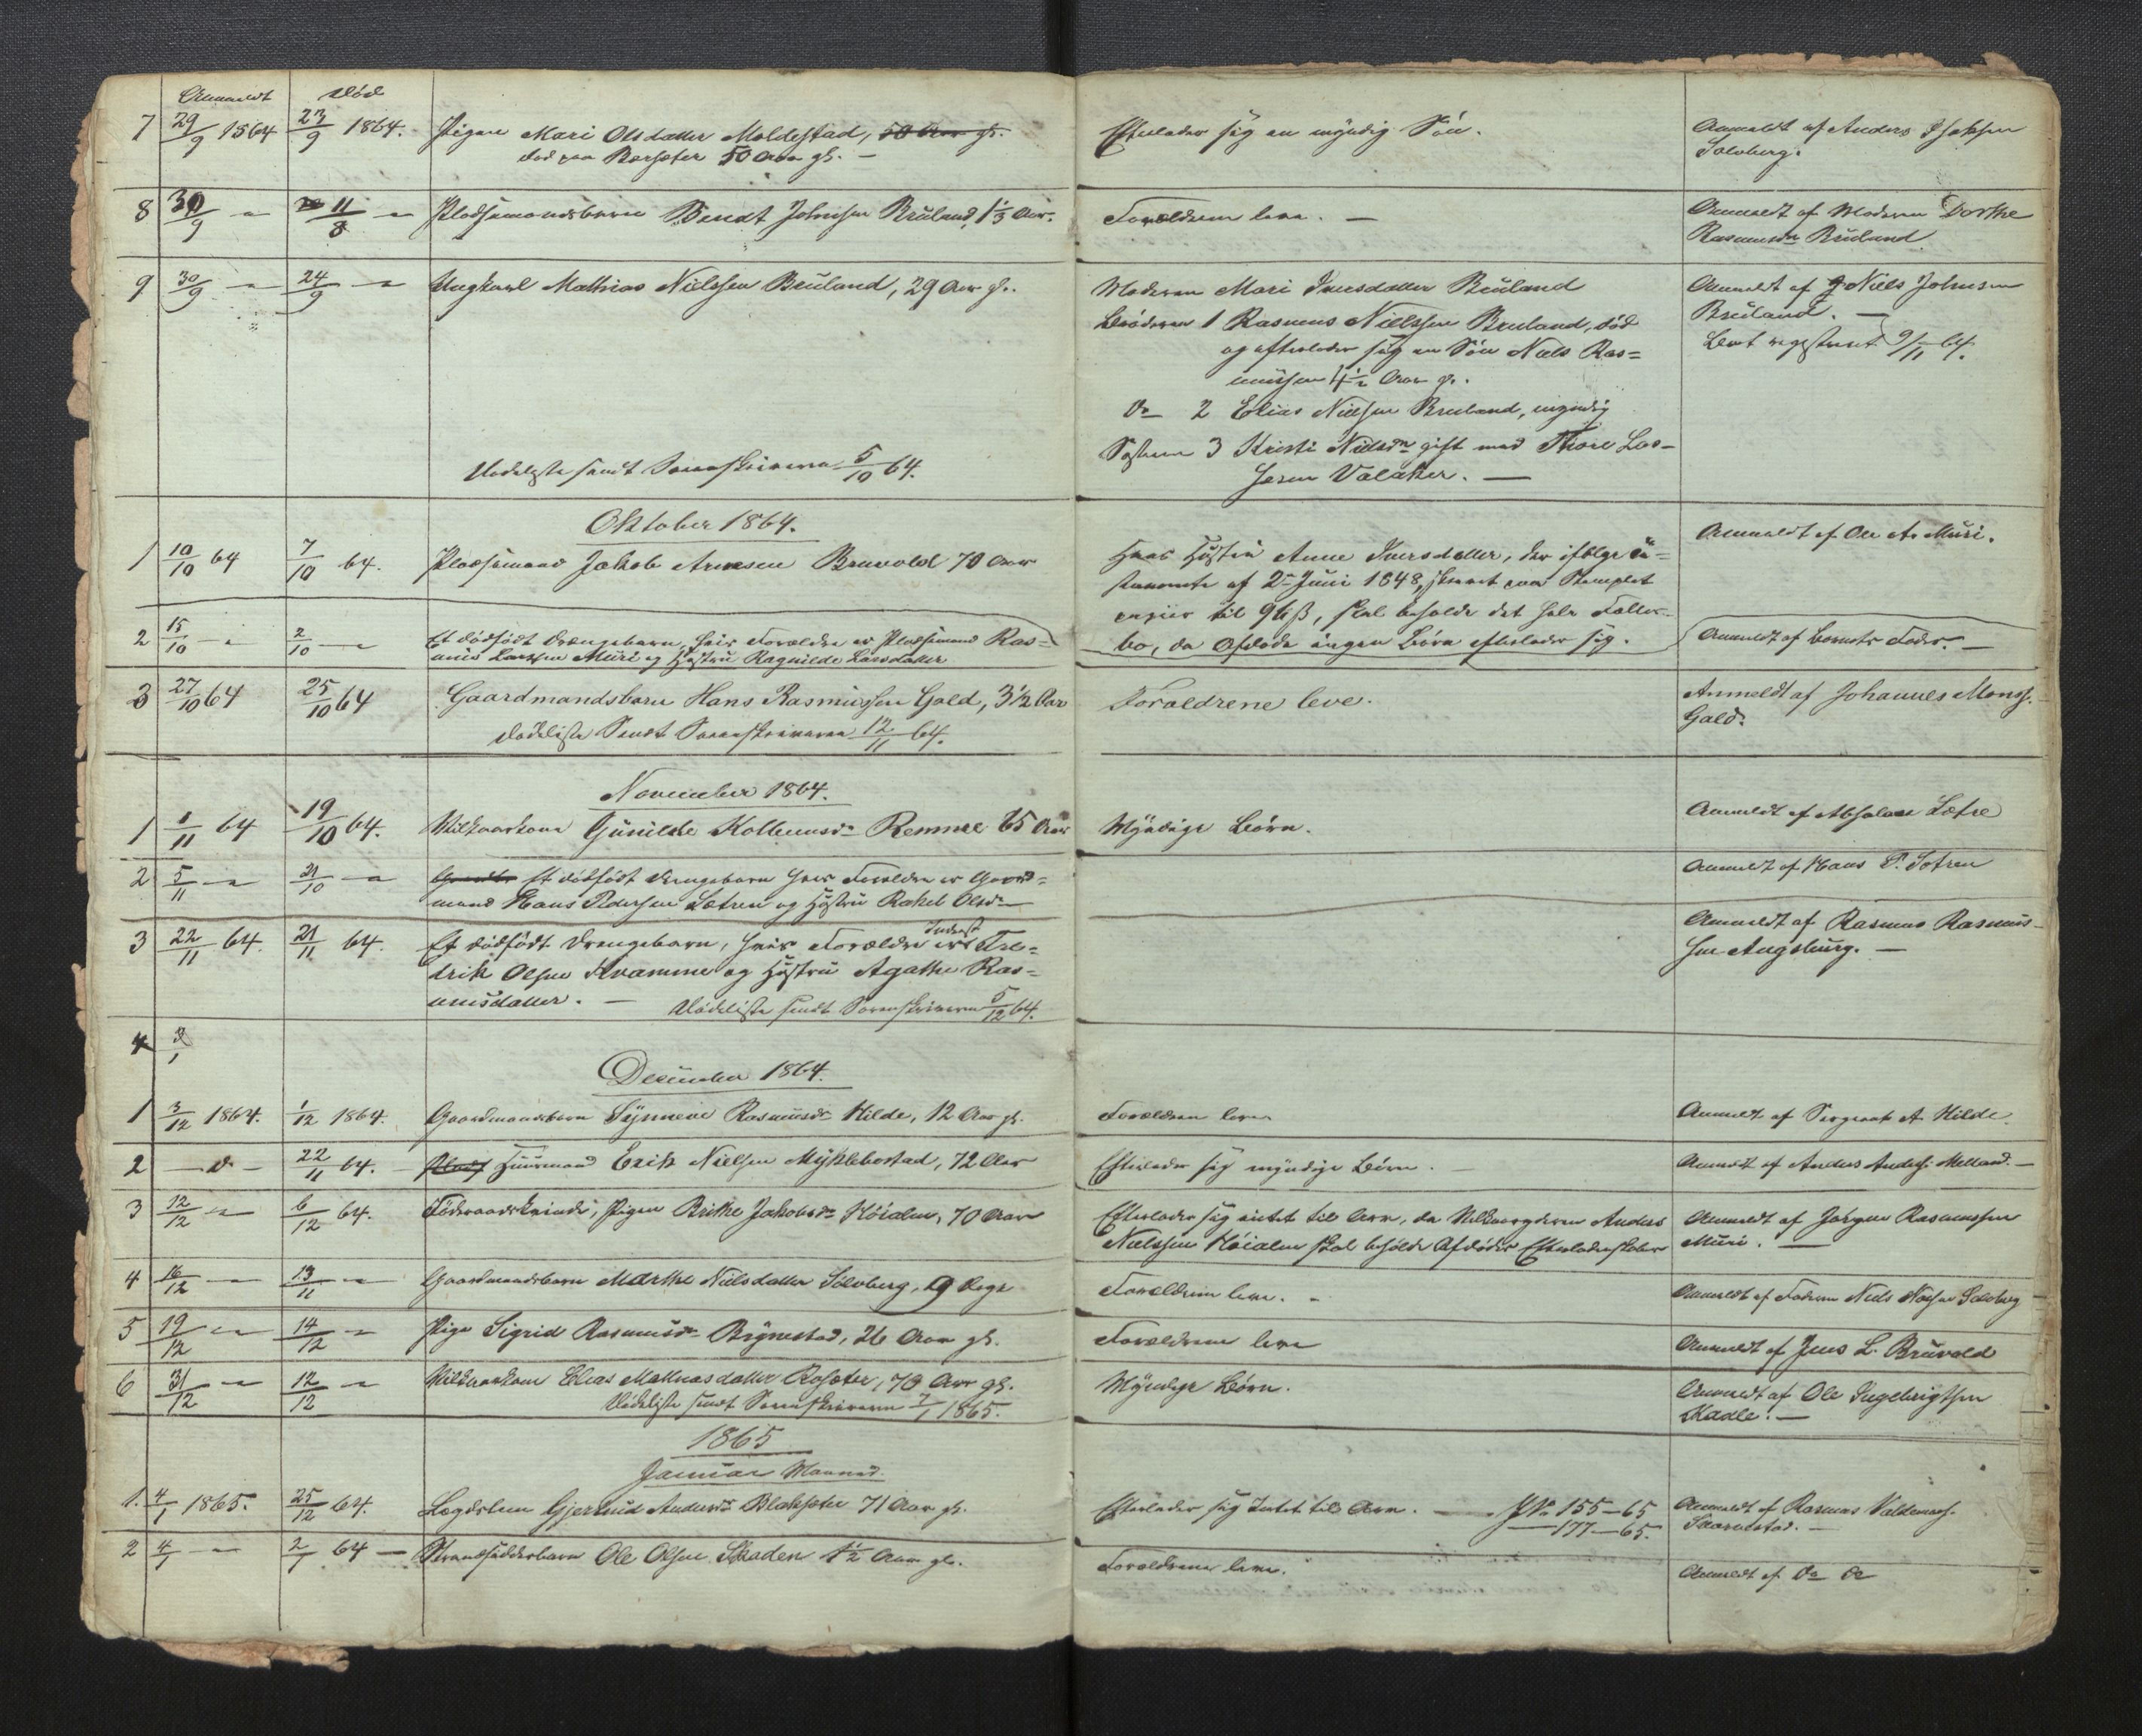 Anmeldt Død
7 29/9 1864 23/9 1864. Pigen Mari Olsdatter Moldestad, 50 Aar gl.
død paa Borsæter 50 Aar gl. —
Efterlader sig en myndig Søn.
Anmeldt af Anders
Solvberg.
8 30/9 — " 11/8 — " Pladsemandsbarn Bendt Johnsen Bruland, 1 1/3 Aar.
Forældrene leve. —
Anmeldt af Moderen Dorthe
Rasmusdr Bruland.
9 30/9 — " 24/9 — " Ungkarl Mathias Nielssen Bruland, 29 Aar gl.
Moderen Mari Iversdatter Bruland
Broderen 1 Rasmus Nielssen Bruland, død
og efterlader sig en Søn Niels Ras=
mussen 4 1/2 Aar gl.
Do 2 Elias Nielsen Bruland, myndig
Søsteren 3 Kristi Nielsdr gift med Thore Las=
sesen Valaker. —
Anmeldt af Niels Johnsen
Bruland. —
Boet registreret 9/11 64.
Dødeliste sendt Sorenskriveren 5/10 64.
Oktober 1864.
1 10/10 64 7/10 64. Pladsemand Jakob Arnesen Bruvold 70 Aar
Hans Hustru Anne Iversdatter, der ifølge Te=
stamente af 2den Juni 1848, skrevet paa Stemplet
papiir til 96 ß, skal beholde det hele Fælles=
bo, da Afdøde ingen Børn efterlader sig.
Anmeldt af Ole A. Muri.
2 15/10 — " 2/10 — " Et dødfødt Drengebarn, hvis Forældre er Pladsemand Ras=
mus Larssen Muri og Hustru Ragnilde Larsdatter
Anmeldt af Barnets Fader. —
3 27/10 64 25/10 64 Gaardmandsbarn Hans Rasmussen Gald, 3 1/2 Aar
Forældrene leve.
Anmeldt af Johannes Monss.
Gald.
Dødeliste Sendt Sorenskriveren 12/11 64.
November 1864.
1 1/11 64 19/10 64. Vilkaarkone Gunilde Kolbensdr Remme 65 Aar
Myndige Børn.
Anmeldt af Absalon Lofre
2 5/11 — " 31/10 — " Et dødfødt Drengebarn hvis Forældre er Gaard=
mand Hans Pedersen Sætren og Hustru Rakel Olsdr
Anmeldt af Hans P. Sætren
3 22/11 64. 21/11 64. Et dødfødt Drengebarn, hvis Forældre er Inderst Fre=
drik Olsen Kvamme og Hustru Agathe Ras=
musdatter. —
Anmeldt af Rasmus Rasmus=
sen Augsburg. —
Dødeliste sendt Sorenskriveren 5/12 64.
4
December 1864.
1 3/12 1864. 1/12 1864. Gaardmandsbarn Synneve Rasmusdr Hilde, 12 Aar gl.
Forældrene leve
Anmeldt af Sergeant A. Hilde.
2 — D — 22/11 64. Huusmand Erik Nielsen Myklebostad, 72 Aar
Efterlader sig myndige Børn. —
Anmeldt af Anders Anders. Melland. —
3 12/12 — " 6/12 64. Føderaadskvinde, Pigen Brithe Jakobsdr Høialm, 70 Aar
Efterlader sig intet til Arv, da Vilkaarsyderen Anders
Nielssen Høialm skal beholde Afdødes Efterladenskaber
Anmeldt af Jørgen Rasmussen
Muri. —
4 16/12 — " 13/11 — " Gaardmandsbarn Marthe Nielsdatter Solvberg, 9 Dage
Forældrene leve. —
Anmeldt af Faderen Niels Solvberg
5 19/12 — " 14/12 — " Pige Sigrid Rasmusdr Brynestad, 26 Aar gl.
Forældrene leve
Anmeldt af Jens L. Bruvold
6 31/12 — " 12/12 — " Vilkaarkone Elias Mathiasdatter Rosæter, 70 Aar gl.
Myndige Børn.
Anmeldt af Ole Ingebrigtsen
Skadle. —
Dødeliste sendt Sorenskriveren 7/1 1865.
1865
Januar Maaned.
1. 4/1 1865. 25/12 64. Lægdslem Gjertrud Andersdr Blaksæter 71 Aar gl.
Efterlader sig Intet til Arv. — J No 155—65
— 177—65.
Anmeldt af Rasmus Valdemars.
2 4/1 — " 2/1 64 — Strandsidderbarn Ole Olsen Skaden 1 1/2 Aar gl.
Forældrene leve.
Anmeldt af Do Do